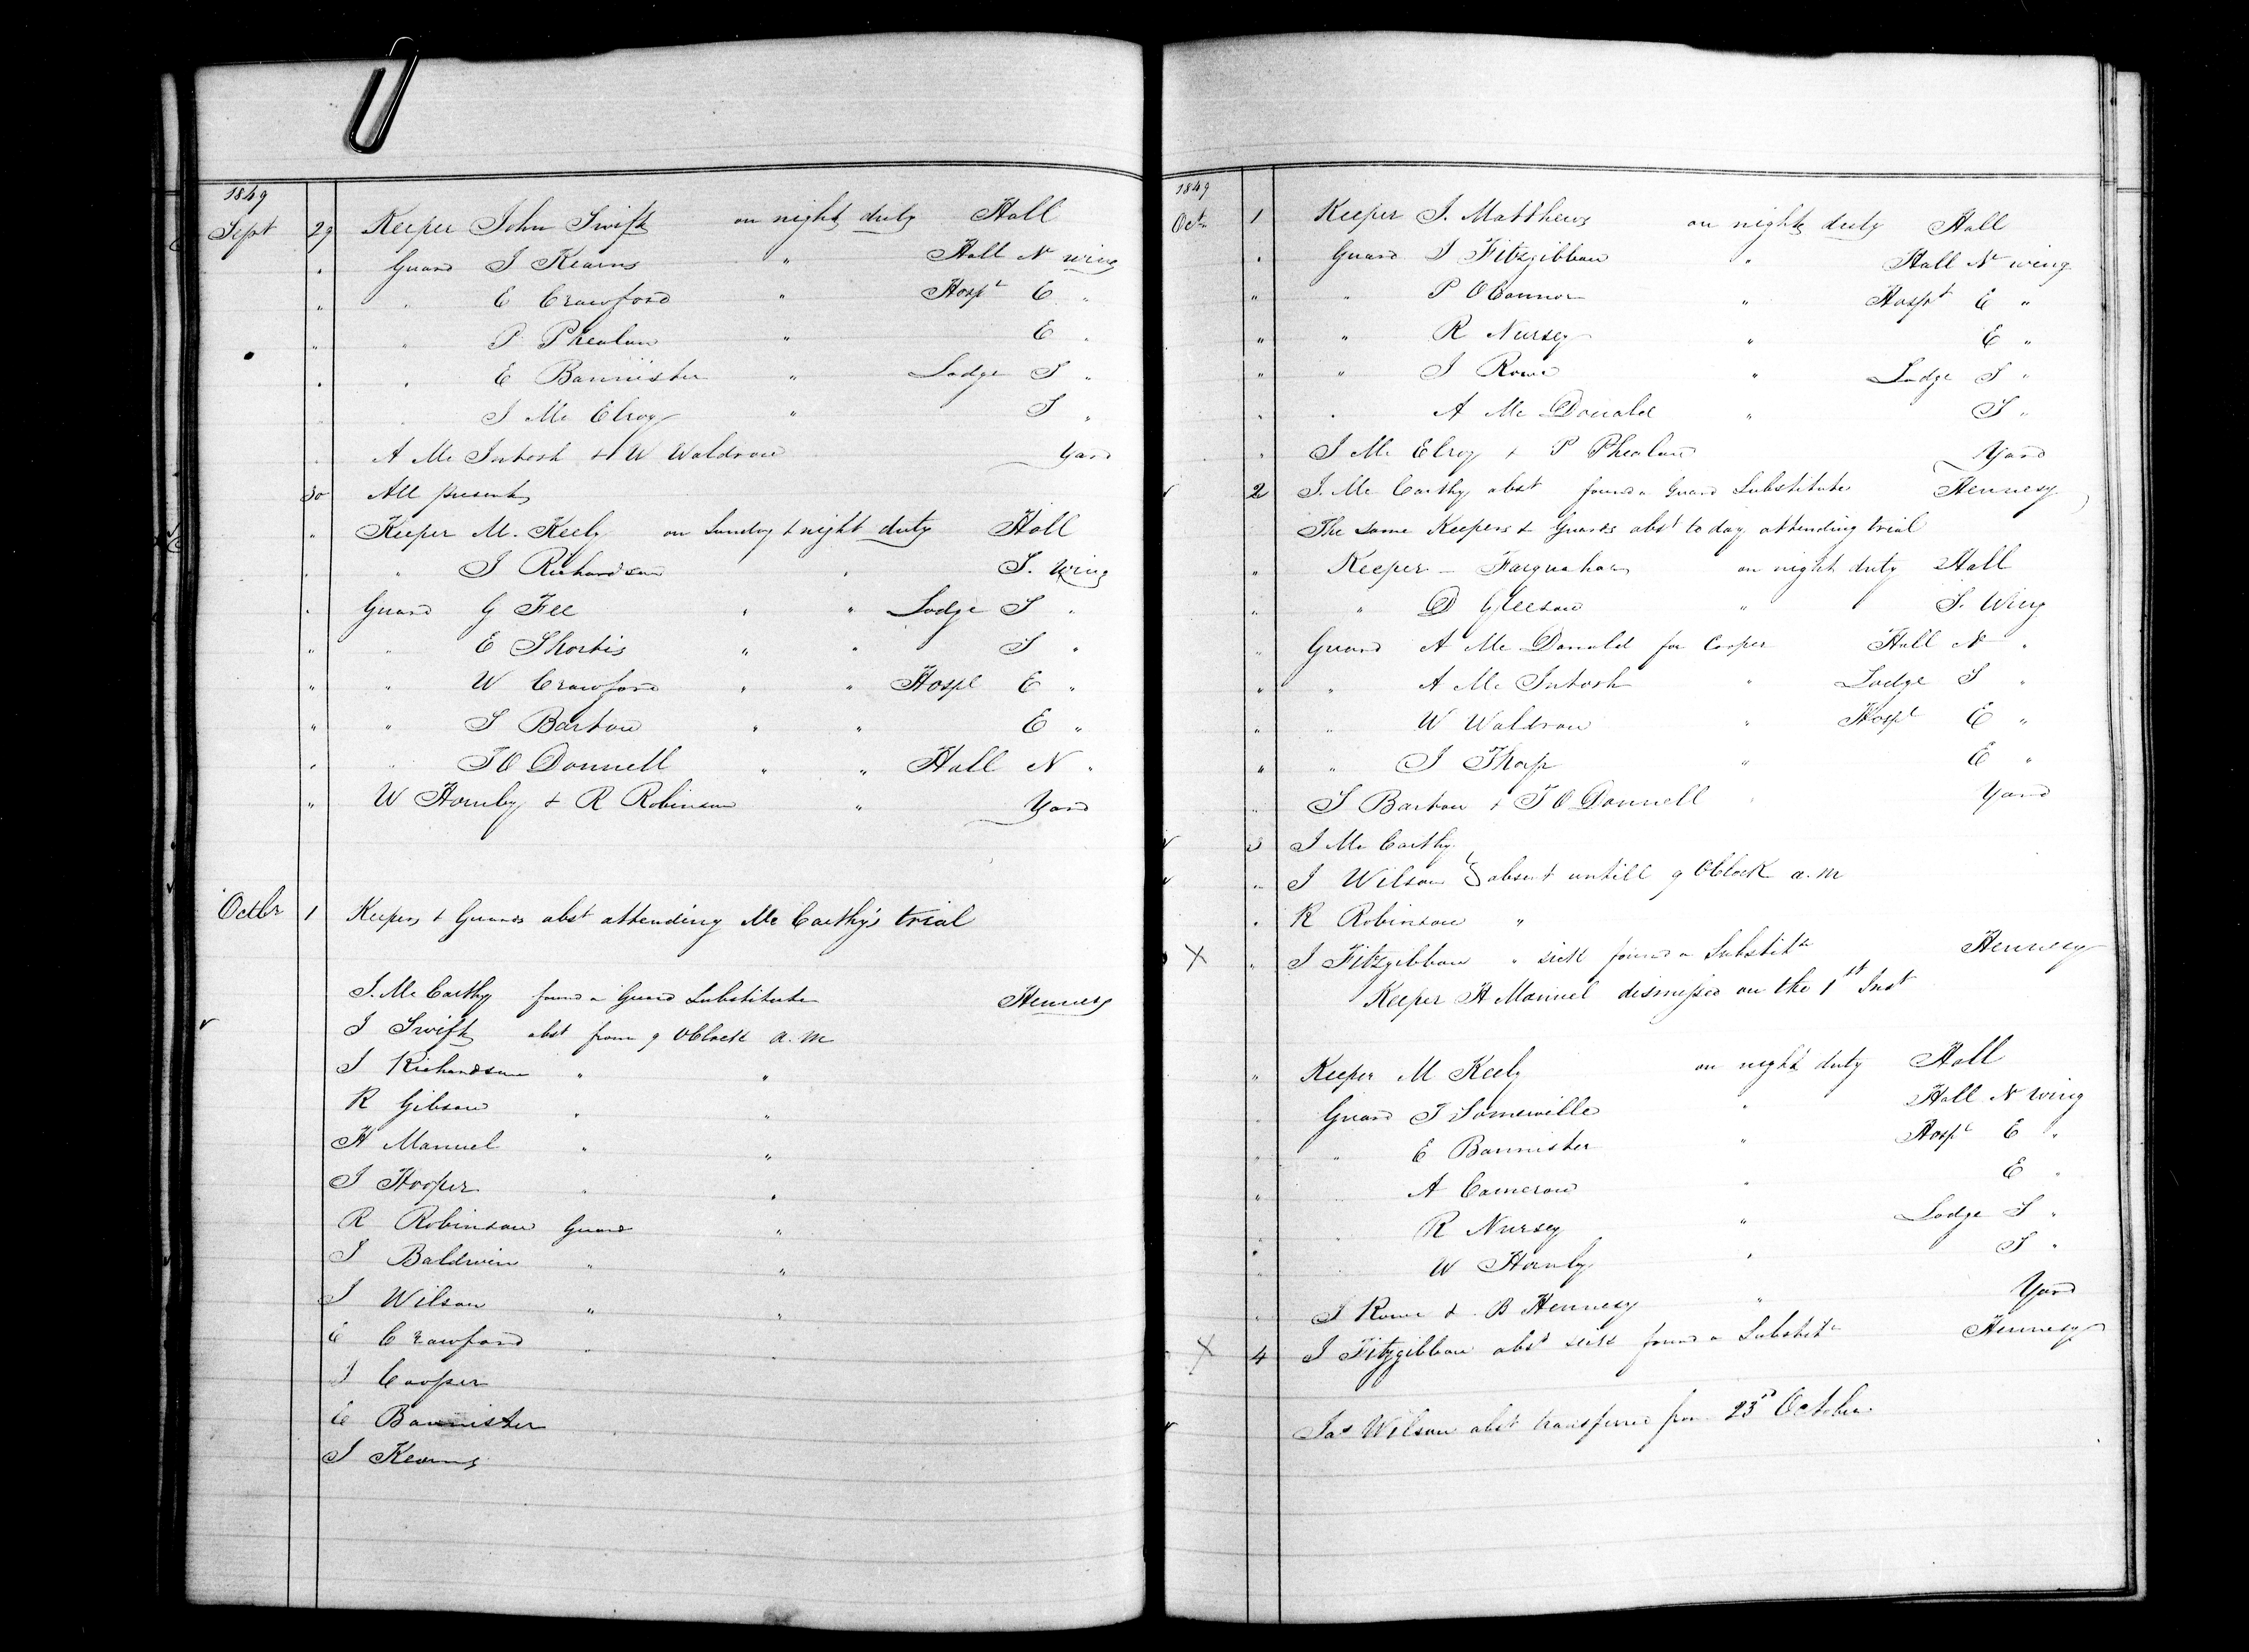 1849
Sept 29 Keeper John Swift on night duty Hall
" Guard J Kearns " Hall N wing
" " E Crawford " Hospt E "
" " P Phealan " E "
" " E Bannister " Lodge S "
" " J Mc Elroy " S "
" A Mc Intosh & W Waldron Yard
30 All present
" Keeper M. Keely on Sunday & night duty Hall
" " J Richardson " S. Wing
" Guard G Fee " " Lodge S "
" " E Shortis " " S "
" " W Crawford " " Hospl E "
" " S Barton " " E "
" " T O Donnell " " Hall N "
" W Hornby & R Robinson " Yard
Octbr 1 Keepers & Guards abst attending Mc Carthy's trial
J. Mc Carthy found a Guard Substitute Hennesy
J Swift abst from 9 OClock a.m
J Richardson " "
R Gibson " "
H Manuel " "
J Hooper " "
R Robinson Guard "
J Baldwin " "
J Wilson " "
E Crawford " "
J Cooper
E Bannister
J Kearns
1849
Oct 1 Keeper J. Matthews on night duty Hall
" Guard J Fitzgibbon " Hall N wing
" " P O Connor " Hospt E "
" " R Nursey " E "
" " J Rowe " Lodge S "
" " A Mc Donald " S "
" J Mc Elroy & P Phealan Yard
2 J. Mc Carthy abst found a Guard Substitute Hennesy
The same Keepers & Guards abst to day attending trial
" Keeper – Farquahar on night duty Hall
" " D Gleeson " S. Wing
" Guard A Mc Donald for Cooper Hall N "
" " A Mc Intosh " Lodge S "
" " W Waldron " Hospl E "
" " J Thorp " E "
" S Barton & T O Donnell " Yard
3 J Mc Carthy
" J Wilson } absent untill 9 OClock a.m
" R Robinson "
X " J Fitzgibbon " sick found a Substite Hennesy
Keeper H Manuel dismissed on the 1st Inst
" Keeper M Keely on night duty Hall
" Guard J Somerville " Hall N Wing
" " E Bannister " Hospl E "
" " A Cameron " E "
" " R Nursey " Lodge S "
" " W Hornby " S "
" J Rowe & B Hennesy " Yard
X 4 J Fitzgibbon abst sick found a Substite Hennesy
Jas Wilson abst transferred from 23rd October